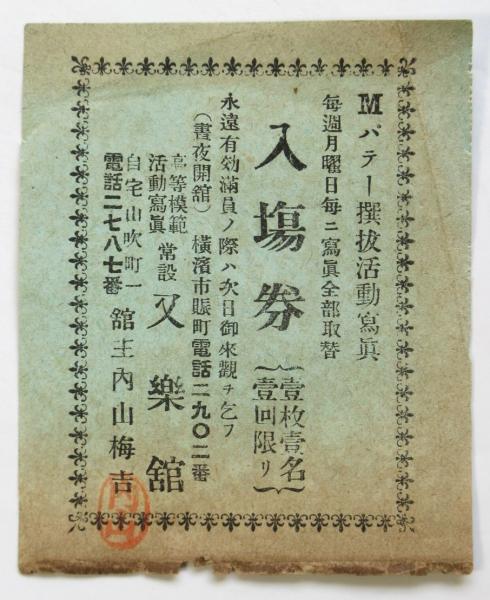 Mパテー撰拔活動寫眞
每週月曜日每ニ寫眞全部取替
入塲券
壹枚壹名
壹回限リ
永遠有効滿員ノ際ハ次日御來觀チ乞フ
(晝夜開舘)橫濱市賑町電話二九〇二番
高等模範
活動寫眞
常設
又樂舘
自宅山吹町一
電話二七八七番
舘主內山梅吉